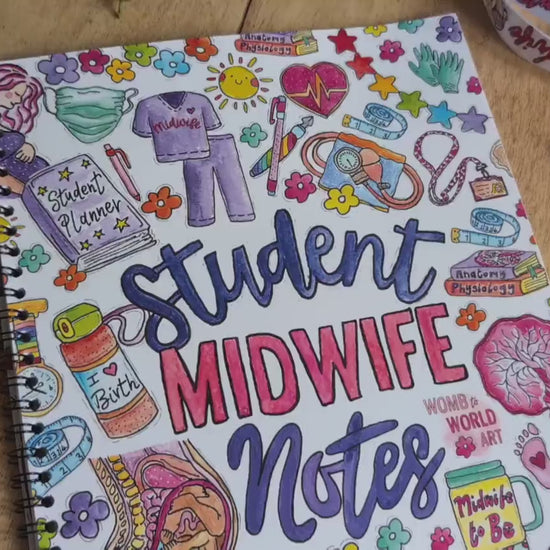 Anatomy
Physiology
Midwife
Student
Planner
Student
MIDWIFE
Notes
Anatomy
Physiology
I
Birth
WOMB to
WORLD
ART
Midwife
to Be